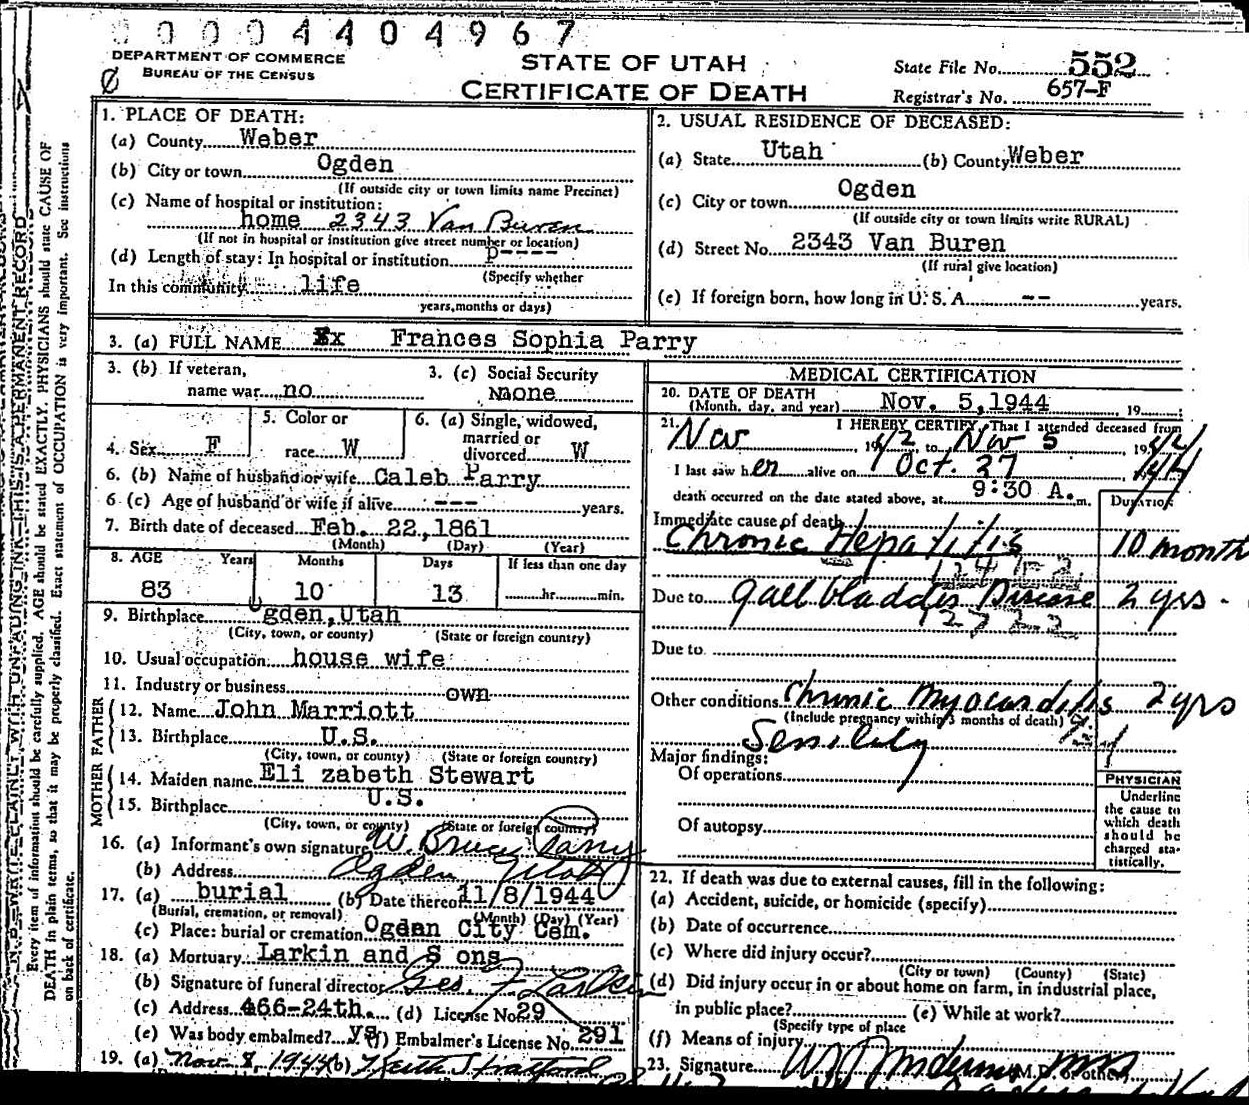 0 0 0 0 4 4 0 4 9 6 7
DEPARTMENT OF COMMERCE
BUREAU OF THE CENSUS
STATE OF UTAH
CERTIFICATE OF DEATH
State File No. 552
Registrar's No. 657-F
Every item of information should be carefully supplied. AGE should be stated EXACTLY. PHYSICIANS should state CAUSE OF
DEATH in plain terms, so that it may be properly classified. Exact statement of OCCUPATION is very important. See instructions
on back of certificate.
1. PLACE OF DEATH:
(a) County Weber
(b) City or town Ogden
(If outside city or town limits name Precinct)
(c) Name of hospital or institution:
home 2343 Van Buren
(If not in hospital or institution give street number or location)
(d) Length of stay: In hospital or institution p----
(Specify whether
In this community life
years, months or days)
2. USUAL RESIDENCE OF DECEASED:
(a) State Utah (b) County Weber
(c) City or town Ogden
(If outside city or town limits write RURAL)
(d) Street No. 2343 Van Buren
(If rural give location)
(e) If foreign born, how long in U. S. A. -- years.
3. (a) FULL NAME Frances Sophia Parry
3. (b) If veteran,
name war no
3. (c) Social Security
none
4. Sex F
5. Color or
race W
6. (a) Single, widowed,
married or
divorced W
6. (b) Name of husband or wife Caleb Parry
6 (c) Age of husband or wife if alive --- years.
7. Birth date of deceased Feb. 22, 1861
(Month) (Day) (Year)
8. AGE Years Months Days If less than one day
83 10 13 hr. min.
9. Birthplace Ogden, Utah
(City, town, or county) (State or foreign country)
10. Usual occupation: house wife
11. Industry or business own
FATHER
12. Name John Marriott
13. Birthplace U.S.
(City, town, or county) (State or foreign country)
MOTHER
14. Maiden name Eli zabeth Stewart
15. Birthplace U.S.
(City, town, or county) (State or foreign country)
16. (a) Informant's own signature W. Bruce Parry
(b) Address Ogden Utah
17. (a) burial (b) Date thereof 11/8/1944
(Burial, cremation, or removal) (Month) (Day) (Year)
(c) Place: burial or cremation Ogden City Cem.
18. (a) Mortuary Larkin and S ons
(b) Signature of funeral director Geo. F Larkin
(c) Address 466-24th. (d) License No. 29
(e) Was body embalmed? ys (f) Embalmer's License No. 291
19. (a) Nov 8, 1944 (b) Keith Stratford
MEDICAL CERTIFICATION
20. DATE OF DEATH
(Month, day, and year) Nov. 5, 1944 , 19 ;
21. I HEREBY CERTIFY, That I attended deceased from
Nov 1942 to Nov 5 1944
I last saw her alive on Oct. 27 1944
death occurred on the date stated above, at 9:30 A. m.
DURATION
Immediate cause of death
Chronic Hepatitis 10 month
Due to gall bladder Disease 2 yrs.
Due to
Other conditions Chronic Myocarditis 2 yrs
(Include pregnancy within 3 months of death)
Senility
Major findings:
Of operations
Of autopsy
PHYSICIAN
Underline
the cause to
which death
should be
charged sta-
tistically.
22. If death was due to external causes, fill in the following:
(a) Accident, suicide, or homicide (specify)
(b) Date of occurrence
(c) Where did injury occur?
(City or town) (County) (State)
(d) Did injury occur in or about home on farm, in industrial place,
in public place? (e) While at work?
(Specify type of place
(f) Means of injury
23. Signature M.D. or other